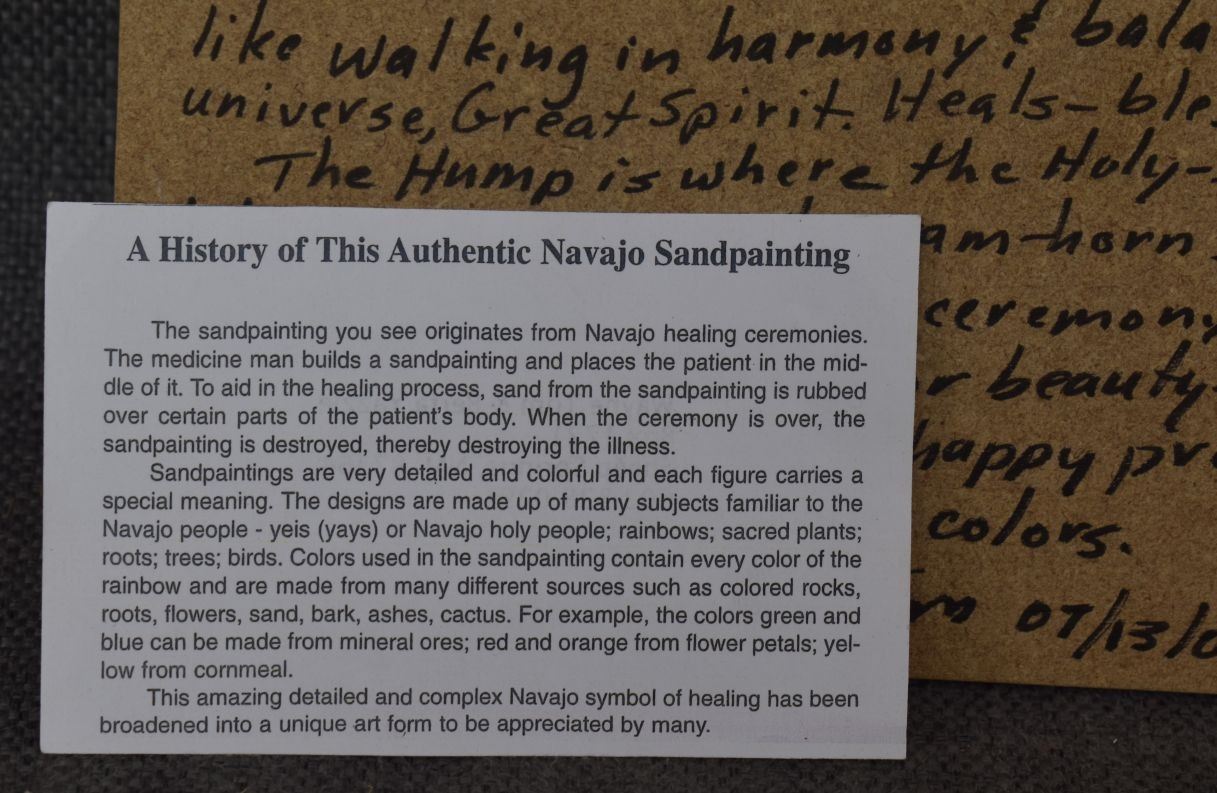 like walking in harmony, &
universe, Great Spirit. Heals-
The Hump is where the Holy-
horn
A History of This Authentic Navajo Sandpainting
The sandpainting you see originates from Navajo healing ceremonies.
The medicine man builds a sandpainting and places the patient in the mid-
dle of it. To aid in the healing process, sand from the sandpainting is rubbed
over certain parts of the patient's body. When the ceremony is over, the
sandpainting is destroyed, thereby destroying the illness.
Sandpaintings are very detailed and colorful and each figure carries a
special meaning. The designs are made up of many subjects familiar to the
Navajo people - yeis (yays) or Navajo holy people; rainbows; sacred plants;
roots; trees; birds. Colors used in the sandpainting contain every color of the
rainbow and are made from many different sources such as colored rocks,
roots, flowers, sand, bark, ashes, cactus. For example, the colors green and
blue can be made from mineral ores; red and orange from flower petals; yel-
low from cornmeal.
This amazing detailed and complex Navajo symbol of healing has been
broadened into a unique art form to be appreciated by many.
ceremony
beauty-
happy
colors.
07/13/0